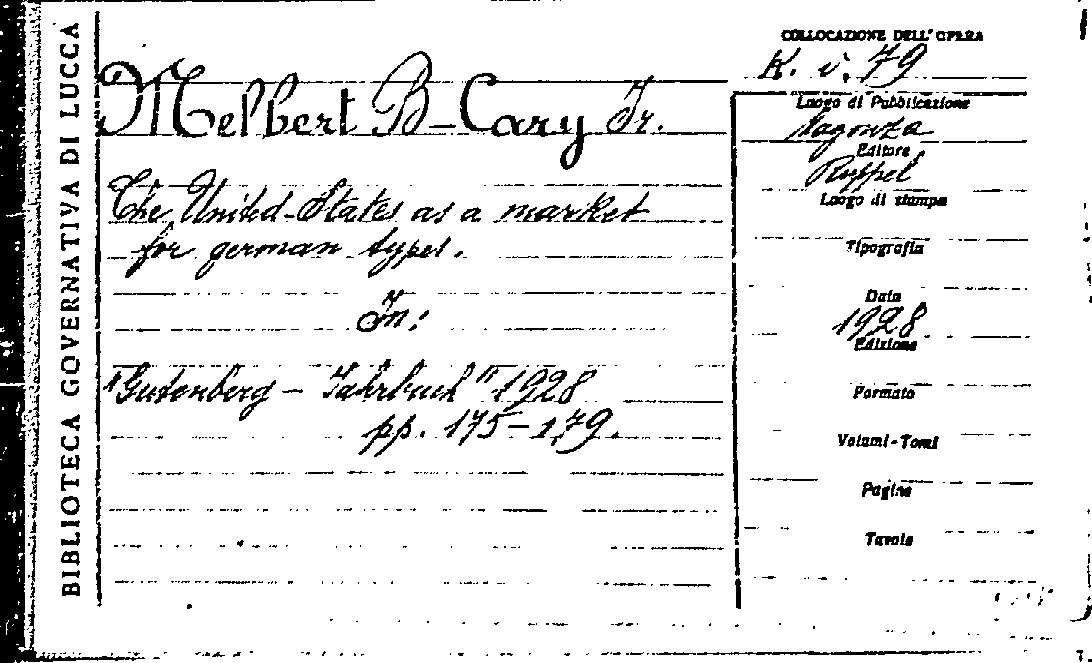 BIBLIOTECA GOVERNATIVA DI LUCCA
Melbert B-Cary Jr.
The United-States as a market
for german types.
In:
"Gutenberg - Jahrbuch" 1928
pp. 175-179.
COLLOCAZIONE DELL'OPERA
K. v. 79
Luogo di Pubblicazione
Magonza
Editore
Ruppel
Luogo di stampa
Tipografia
Data
1928
Edizione
Formato
Volumi-Tomi
Pagine
Tavole